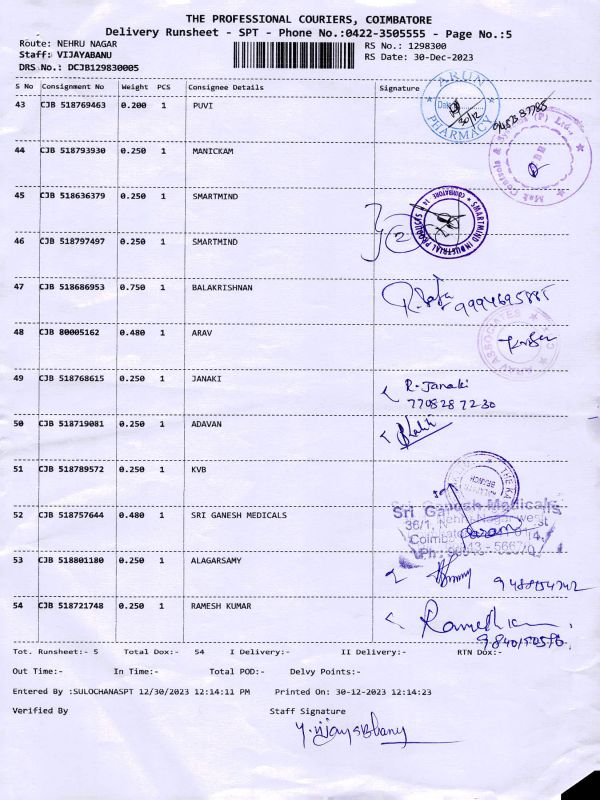 THE PROFESSIONAL COURIERS, COIMBATORE
Delivery Runsheet - SPT - Phone No.:0422-3505555 - Page No.:5
Route: NEHRU NAGAR RS No.: 1298300
Staff: VIJAYABANU RS Date: 30-Dec-2023
DRS No.: DCJB129830005
S No Consignment No Weight PCS Consignee Details Signature
43 CJB 518769463 0.200 1 PUVI
ARUN PHARMACY
44 CJB 518793930 0.250 1 MANICKAM
45 CJB 518636379 0.250 1 SMARTMIND
SMARTMIND INDUSTRIAL PRODUCTS COIMBATORE - 14
46 CJB 518797497 0.250 1 SMARTMIND
2
47 CJB 518686953 0.750 1 BALAKRISHNAN
9994695885
48 CJB 80005162 0.480 1 ARAV
ARAV ASSOCIATES
49 CJB 518768615 0.250 1 JANAKI R. Janaki
7708287230
50 CJB 518719081 0.250 1 ADAVAN
51 CJB 518789572 0.250 1 KVB
BRANCH
52 CJB 518757644 0.480 1 SRI GANESH MEDICALS
Sri Ganesh Medicals
36/1, Nehru Nagar West
53 CJB 518801180 0.250 1 ALAGARSAMY
54 CJB 518721748 0.250 1 RAMESH KUMAR
9840150576
Tot. Runsheet:- 5 Total Dox:- 54 I Delivery:- II Delivery:- RTN Dox:-
Out Time:- In Time:- Total POD:- Delvy Points:-
Entered By :SULOCHANASPT 12/30/2023 12:14:11 PM Printed On: 30-12-2023 12:14:23
Verified By Staff Signature